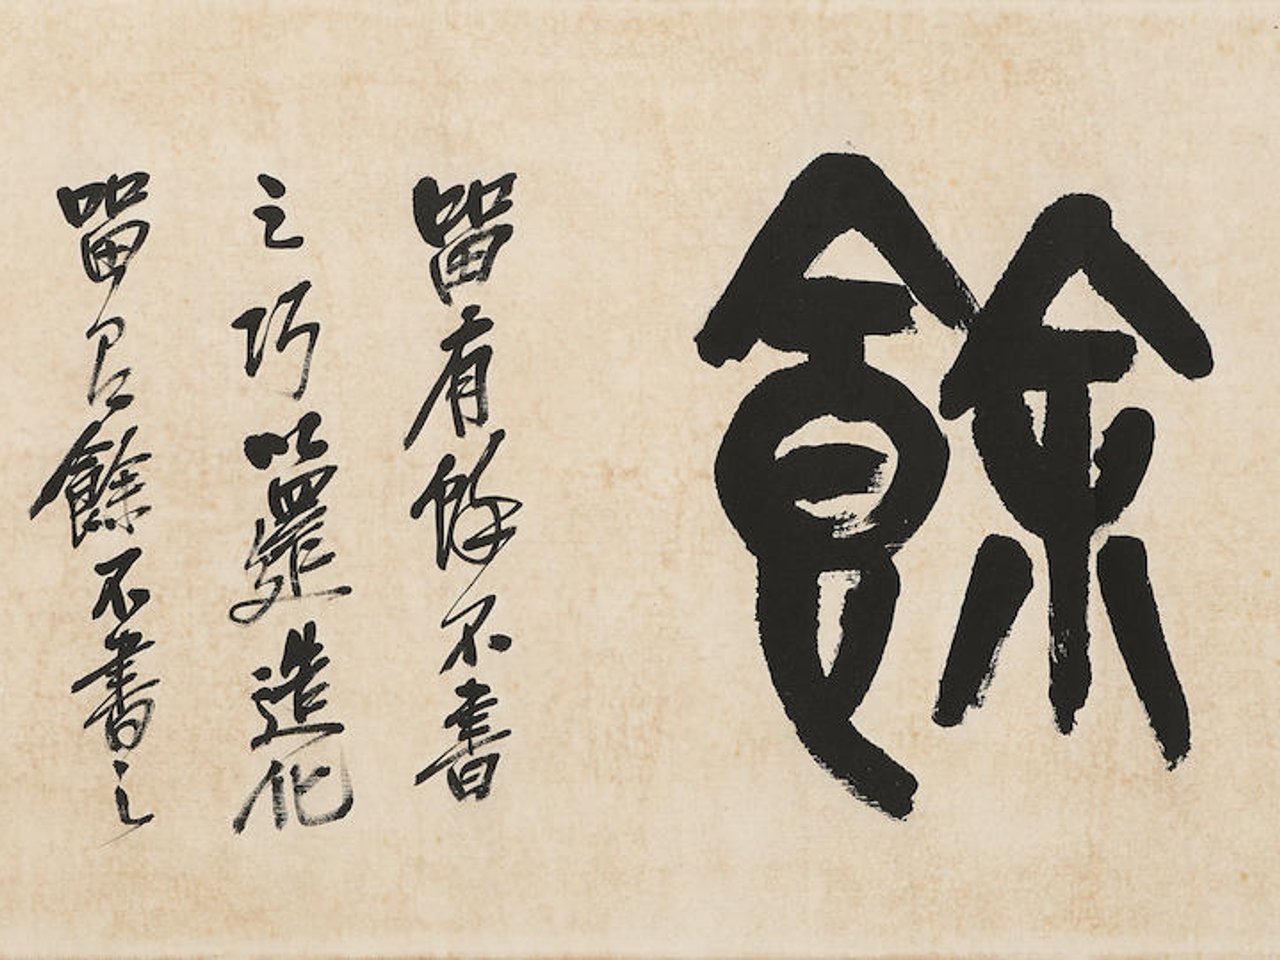 餘
留有餘不盡
之巧以還造化
留有餘不盡之